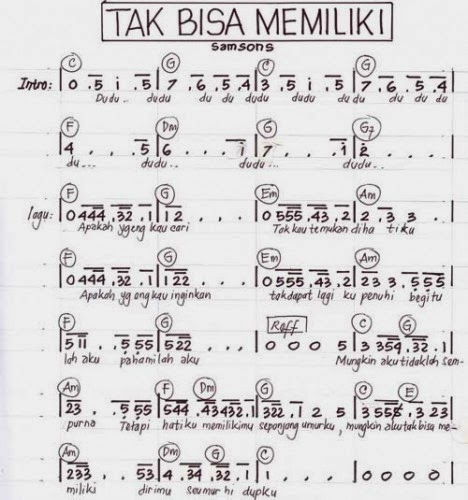 TAK BISA MEMILIKI
samsons
C G C G
Intro: | 0 .5 i .5 | 7 .6 .5 .4 | 3 .5 i .5 | 7 .6 .5 .4
Dudu.. dudu du du dudu dudu dudu du du du
F Dm G G7
| 4 . . .5 | 6 . . .i | 7 . . .i | 2 . . . .
du... dudu.. dudu... dudu..
F G Em Am
lagu: | 0 444 .32 .1 | 12 . . . | 0 555 .43 .2 | 2 .3 3 . .
Apakah ygeng kau cari Tak kau temukan diha tiku
F G Em Am
| 0 444 .32 .1 | 122 . . . | 0 555 .43 .2 | 23 3 .555
Apakah yg ang kau inginkan takdapat lagi ku penuhi begitu
F G Reff C G
| 511 . .555 | 522 . . . | 0 0 0 5 | 3 354 .32 .1
lah aku pahami lah aku Mungkin aku tidaklah sem-
Am F Dm G C E
| 23 . .555 | 544 .43432 .1 | 322 .1 2 5 | 3 555 .3 23
purna Tetapi hatiku memilikimu sepanjang umurku, mungkin aku tak bisa me-
Am Dm G C
| 233 . . 53 | 4 .34 .32 .1 | 1 . . . | 0 0 0 0 |
miliki dirimu seumur hi dupku